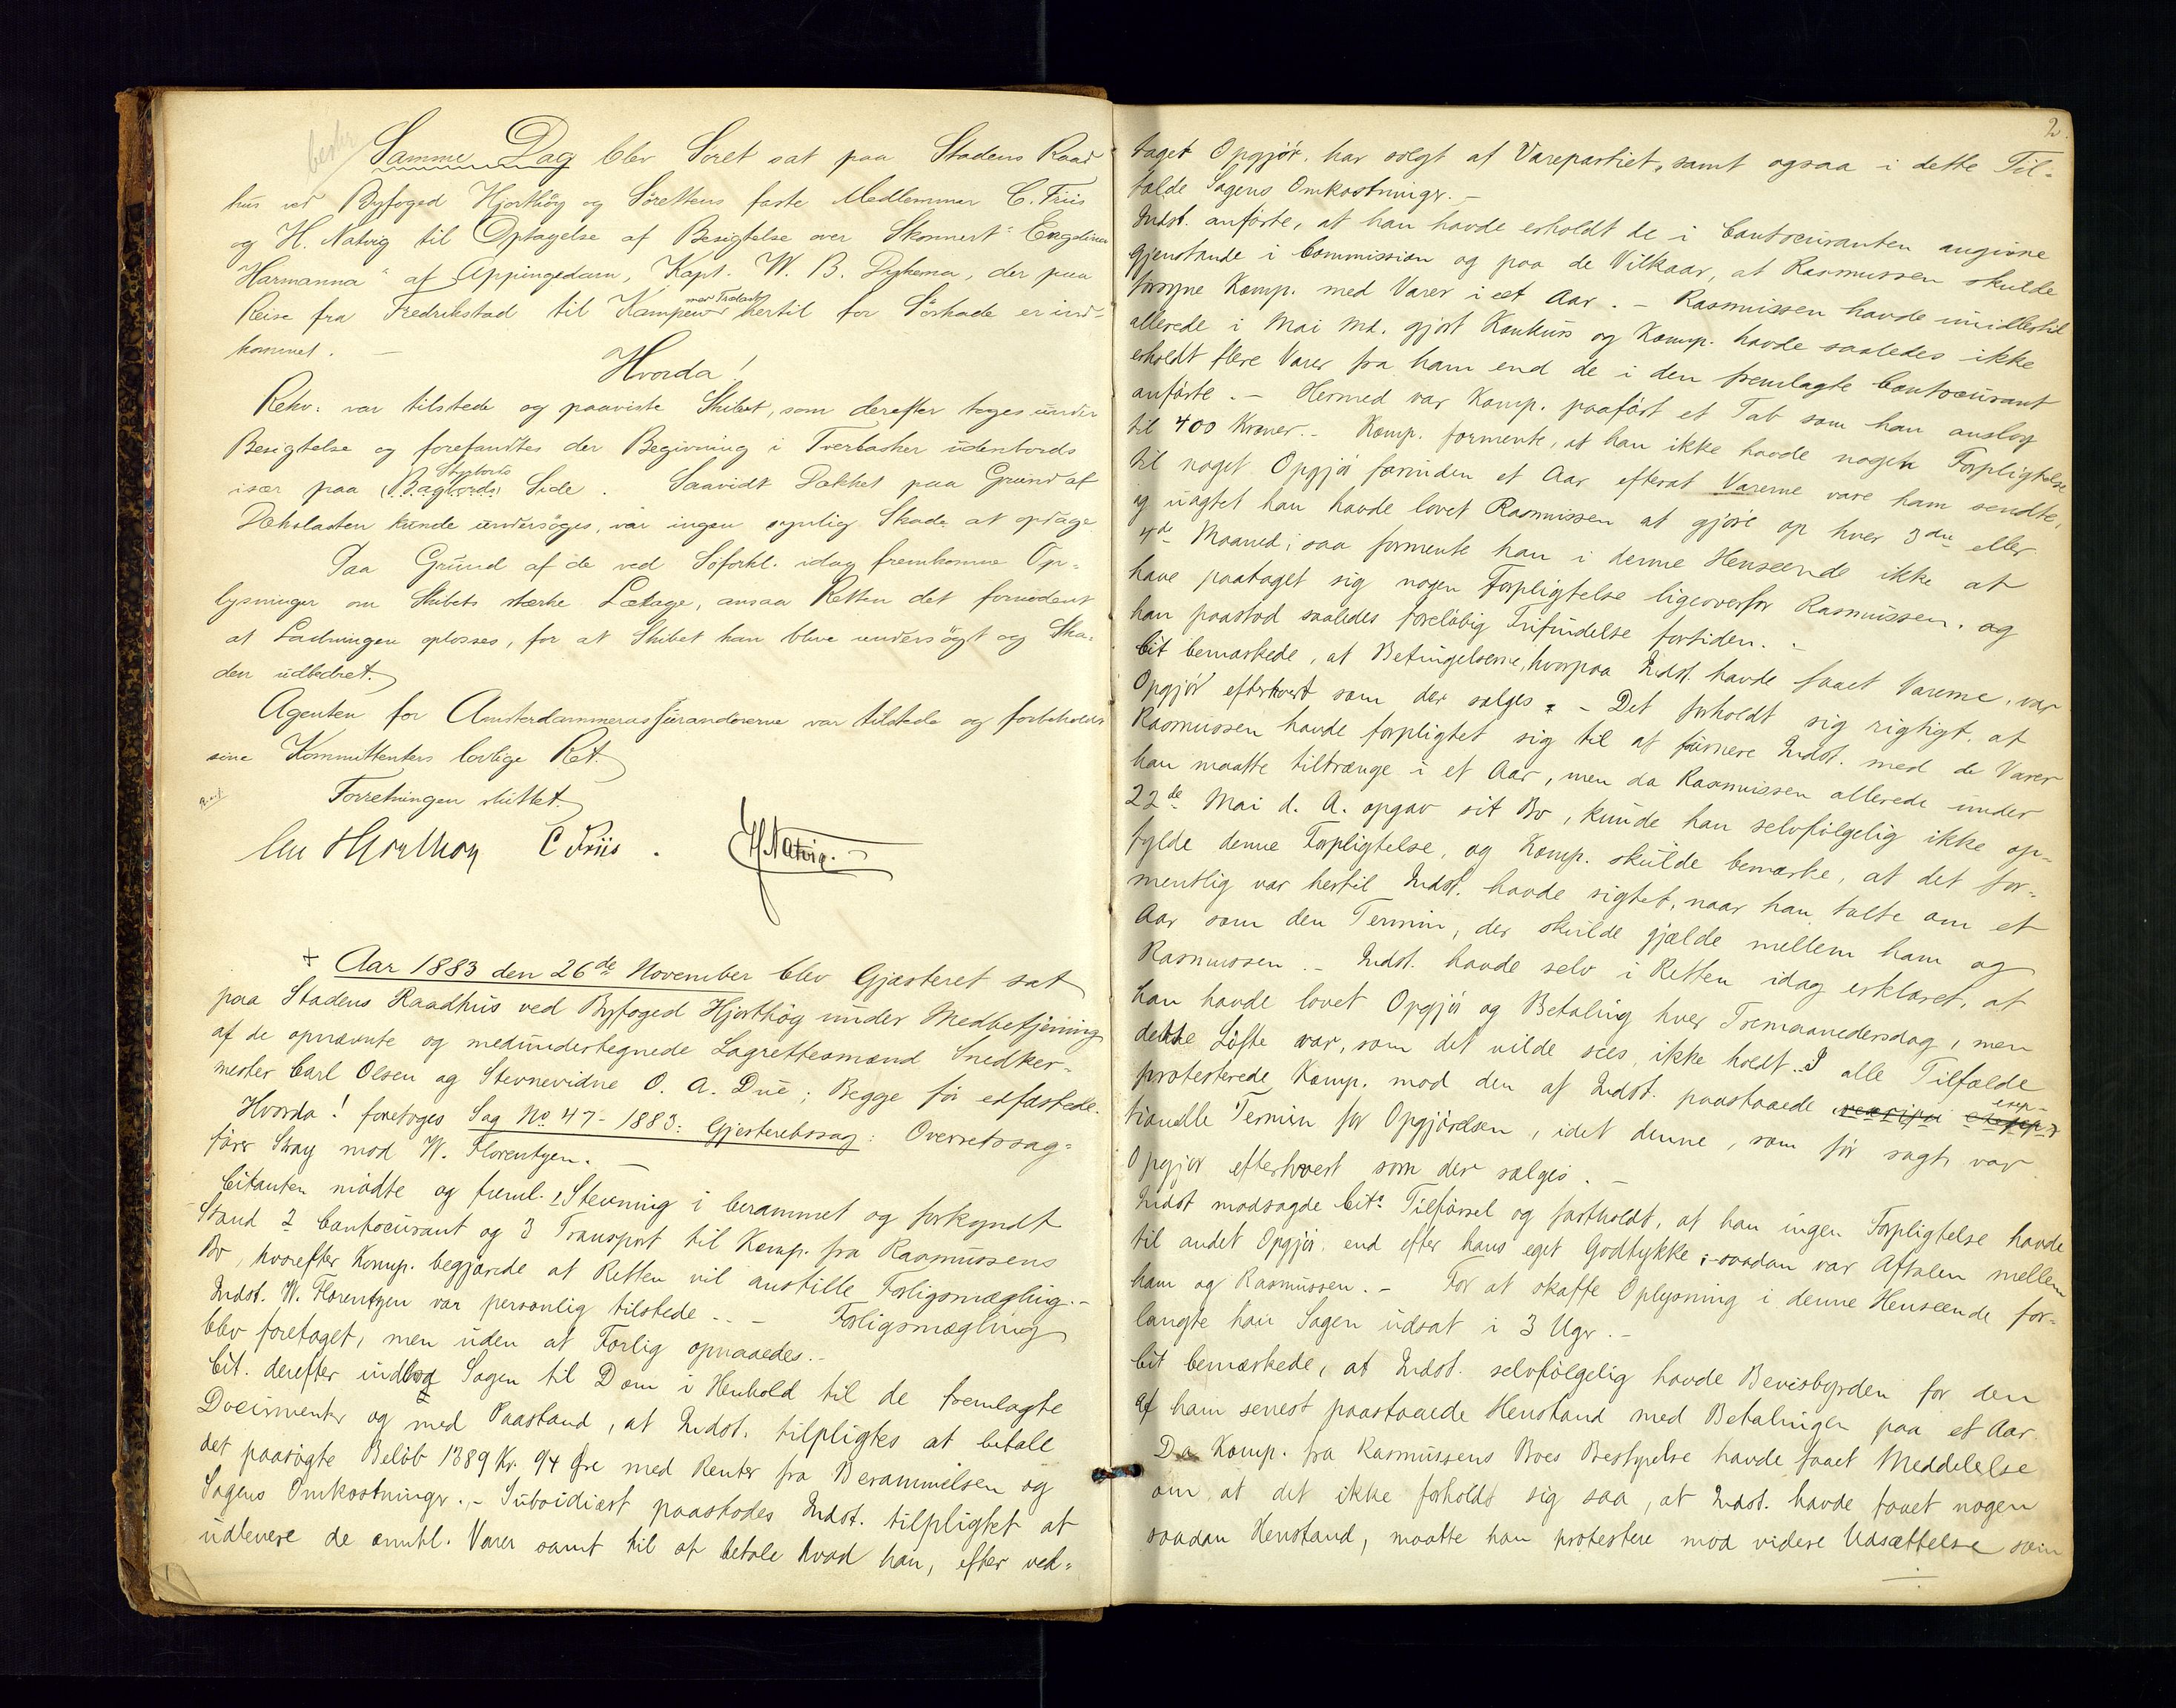 Samme Dag blev Søret sat paa Stadens Raad
hus ved Byfoged Hjorthøy og Sørettens faste Medlemmer C. Friis
og H. Natvig til Optagelse af Besigtelse over Skonnert "Engelina
Harmanna" af Appingedam, Kapt. W. B. Dykema, der paa
Reise fra Fredrikstad til Kampen med Trælast hertil for Søskade er ind-
kommet. —
Hvorda!
Rekv. var tilstede og paaviste Skibet, som derefter toges under
Besigtelse og forefandtes der Begivning i Tverbasker udenbords
især paa (Bagbords) Styrbords Side. Saavidt Dækket paa Grund af
Dækslasten kunde undersøges, var ingen synlig Skade at opdage
Paa Grund af de ved Søforkl. idag fremkomne Op-
lysninger om Skibets stærke Lækage, ansaa Retten det fornødent
at Ladningen oplosses, for at Skibet kan blive undersøgt og Ska-
den udbedret.
Agenten for Amsterdammerassurandørerne var tilstede og forbeholdt
sine Kommittenters lovlige Ret.
Forretningen sluttet.
Hjorthøy C Friis. H. Natvig.
+ Aar 1883 den 26de November blev Gjæsteret sat
paa Stadens Raadhus ved Byfoged Hjorthøy under Medbetjening
af de opnævnte og medundertegnede Lagrettesmænd Snedker-
mester Carl Olsen og Stevnevidne O. A. Due; Begge før edfæstede.
Hvorda! foretoges Sag No 47- 1883: Gjesteretssag: Overretssag-
fører Stray mod W. Florentzen. —
Citanten mødte og freml. 1 Stevning i berammet og forkyndt
Stand 2 Contocurant og 3 Transport til Komp. fra Rasmussens
Bo, hvorefter Komp. begjærede at Retten vil anstille Forligsmægling.-
Indst. W. Florentzen var personlig tilstede.. — Forligsmægling
blev foretaget, men uden at Forlig opnaaedes.-
Cit. derefter indlog Sagen til Dom i Henhold til de fremlagte
Documenter og med Paastand, at Indst. tilpligtes at betale
det paasøgte Beløb 1389 Kr. 94 Øre med Renter fra Berammelsen og
Sagens Omkostninger.- Subsidiært paastodes Indst. tilpligtet at
udlevere de omhl. Varer samt til at betale hvad han, efter ved-
2.
taget Opgjør, har solgt af Varepartiet, samt ogsaa i dette Til-
fælde Sagens Omkostninger.-
Indst. anførte, at han havde erholdt de i Contocuranten angivne
Gjenstande i Commission og paa de Vilkaar, at Rasmussen skulde
forsyne Komp. med Varer i et Aar. - Rasmussen havde imidlertid
allerede i Mai Md. gjort Konkurs og Komp. havde saaledes ikke
erholdt flere Varer fra ham end de i den fremlagte Contocurant
anførte. - Hermed var Komp. paaført et Tab som han anslog
til 400 Kroner.- Komp. formente, at han ikke havde nogen Forpligtelse
til noget Opgjør forinden et Aar efterat Varerne vare ham sendte,
og uagtet han havde lovet Rasmussen at gjøre op hver 3die eller
4de Maaned, saa formente han i denne Henseende ikke at
have paataget sig nogen Forpligtelse ligeoverfor Rasmussen, og
han paastod saaledes foreløbig Frifindelse fortiden. -
Cit bemærkede, at Betingelserne, hvorpaa Indst. havde faaet Varerne, var
Opgjør efterhvert som der sælges. - Det forholdt sig rigtigt, at
Rasmussen havde forpligtet sig til at furnere Indst. med de Varer
han maatte tiltrænge i et Aar, men da Rasmussen allerede under
22de Mai d. A. opgav sit Bo, kunde han selvfølgelig ikke op-
fylde denne Forpligtelse, og Komp. skulde bemærke, at det for-
mentlig var hertil Indst. havde sigtet, naar han talte om et
Aar som den Termin, der skulde gjælde mellem ham og
Rasmussen. - Indst. havde selv i Retten idag erklæret, at
han havde lovet Opgjør og Betaling hver Tremaanedersdag, men
dette Løfte var, som det vilde sees, ikke holdt. I alle Tilfælde
protesterede Komp. mod den af Indst. paastaaede excep-
tionelle Termin for Opgjørelsen, idet denne, som før sagt, var
Opgjør efterhvert som der sælges. —
Indst modsagde Cits Tilførsel og fastholdt, at han ingen Forpligtelse havde
til andet Opgjør, end efter hans eget Godtykke; saadan var Aftalen mellem
ham og Rasmussen. - For at skaffe Oplysning i denne Henseende for-
langte han Sagen udsat i 3 Uger.-
Cit bemærkede, at Indst. selvfølgelig havde Bevisbyrden for den
af ham senest paastaaede Henstand med Betalingen paa et Aar.
Da Komp. fra Rasmussens Boes Bestyrelse havde faaet Meddelelse
om, at det ikke forholdt sig saa, at Indst. havde faaet nogen
saadan Henstand, maatte han protestere mod videre Udsættelse som